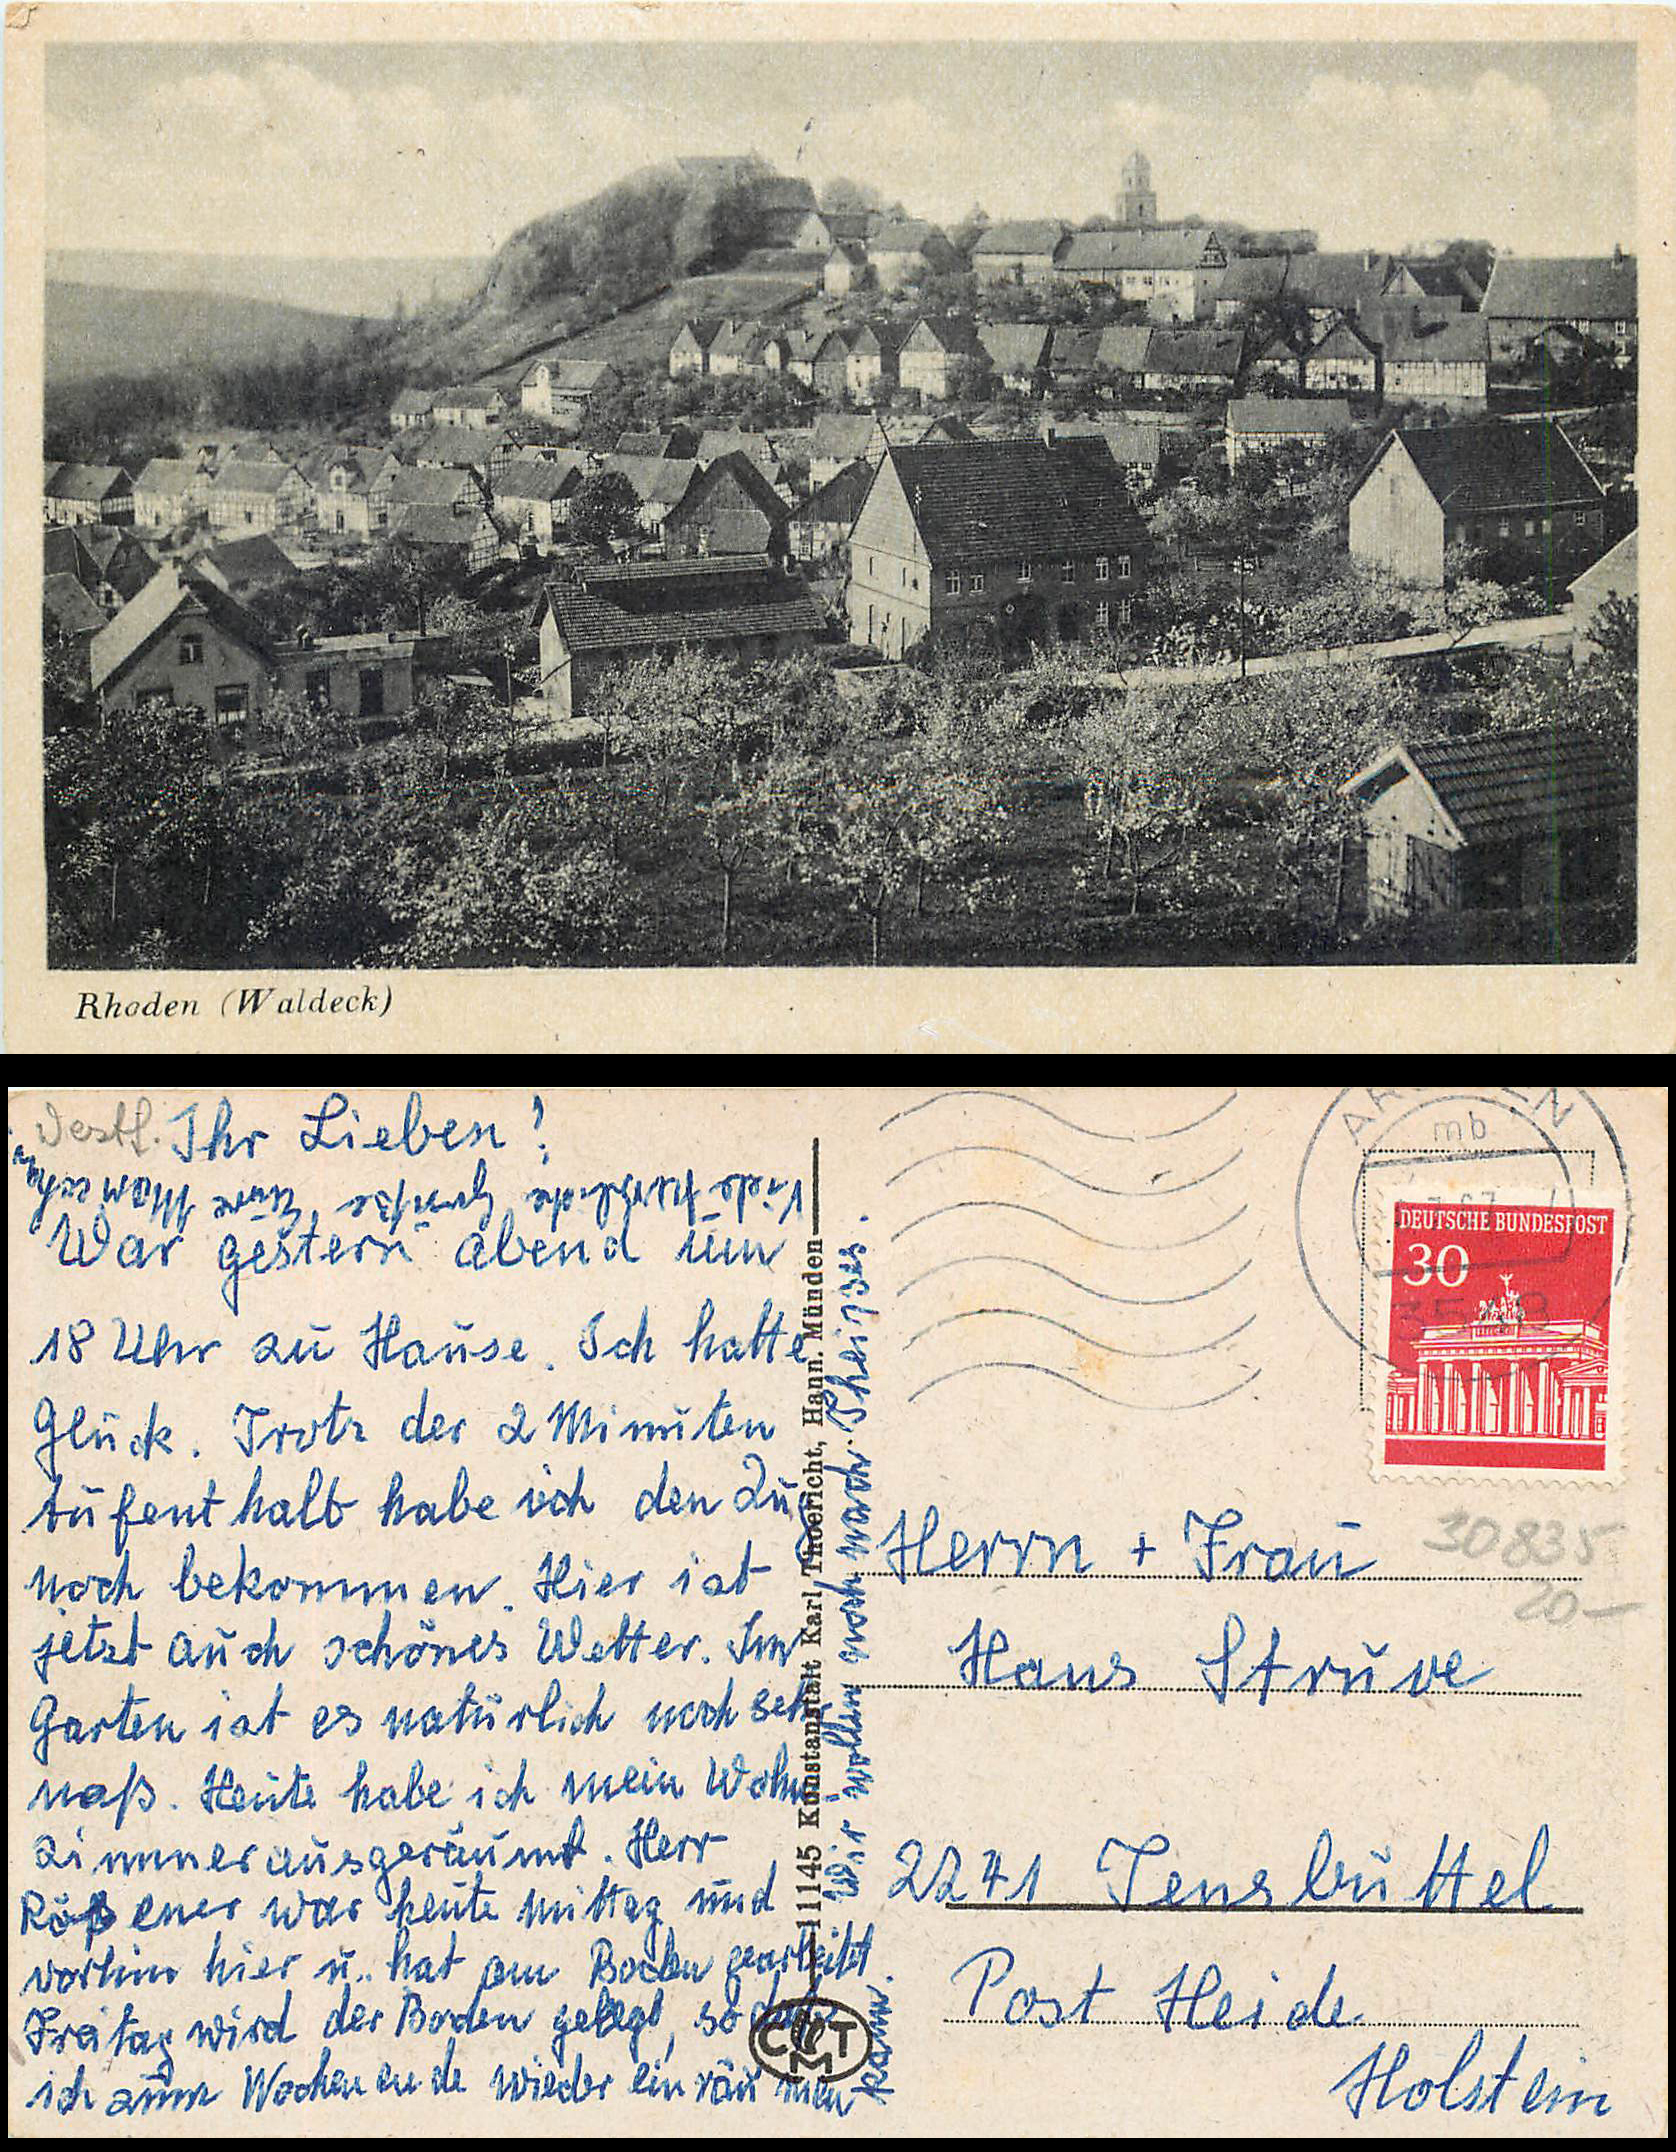 Rhoden (Waldeck)
Westf.
Ihr Lieben!
War gestern abend um
18 Uhr zu Hause. Ich hatte
Glück. Trotz der 2 Minuten
Aufenthalt habe ich den Zug
noch bekommen. Hier ist
jetzt auch schönes Wetter. Im
Garten ist es natürlich noch sehr
naß. Heute habe ich mein Wohn
zimmer ausgeräumt. Herr
war heute mittag und
vorhin hier u. hat am Boden gearbeitet
Freitag wird der Boden gelegt, so daß
ich zum Wochenende wieder einräumen
kann.
Wir wollen noch nach
Viele herzliche Grüße
11145 Kunstanstalt Karl Thoericht, Hann. Münden
CMT
mb
DEUTSCHE BUNDESPOST
30
30835
20-
Herrn + Frau
Hans Struve
2241 Tensbüttel
Post Heide
Holstein